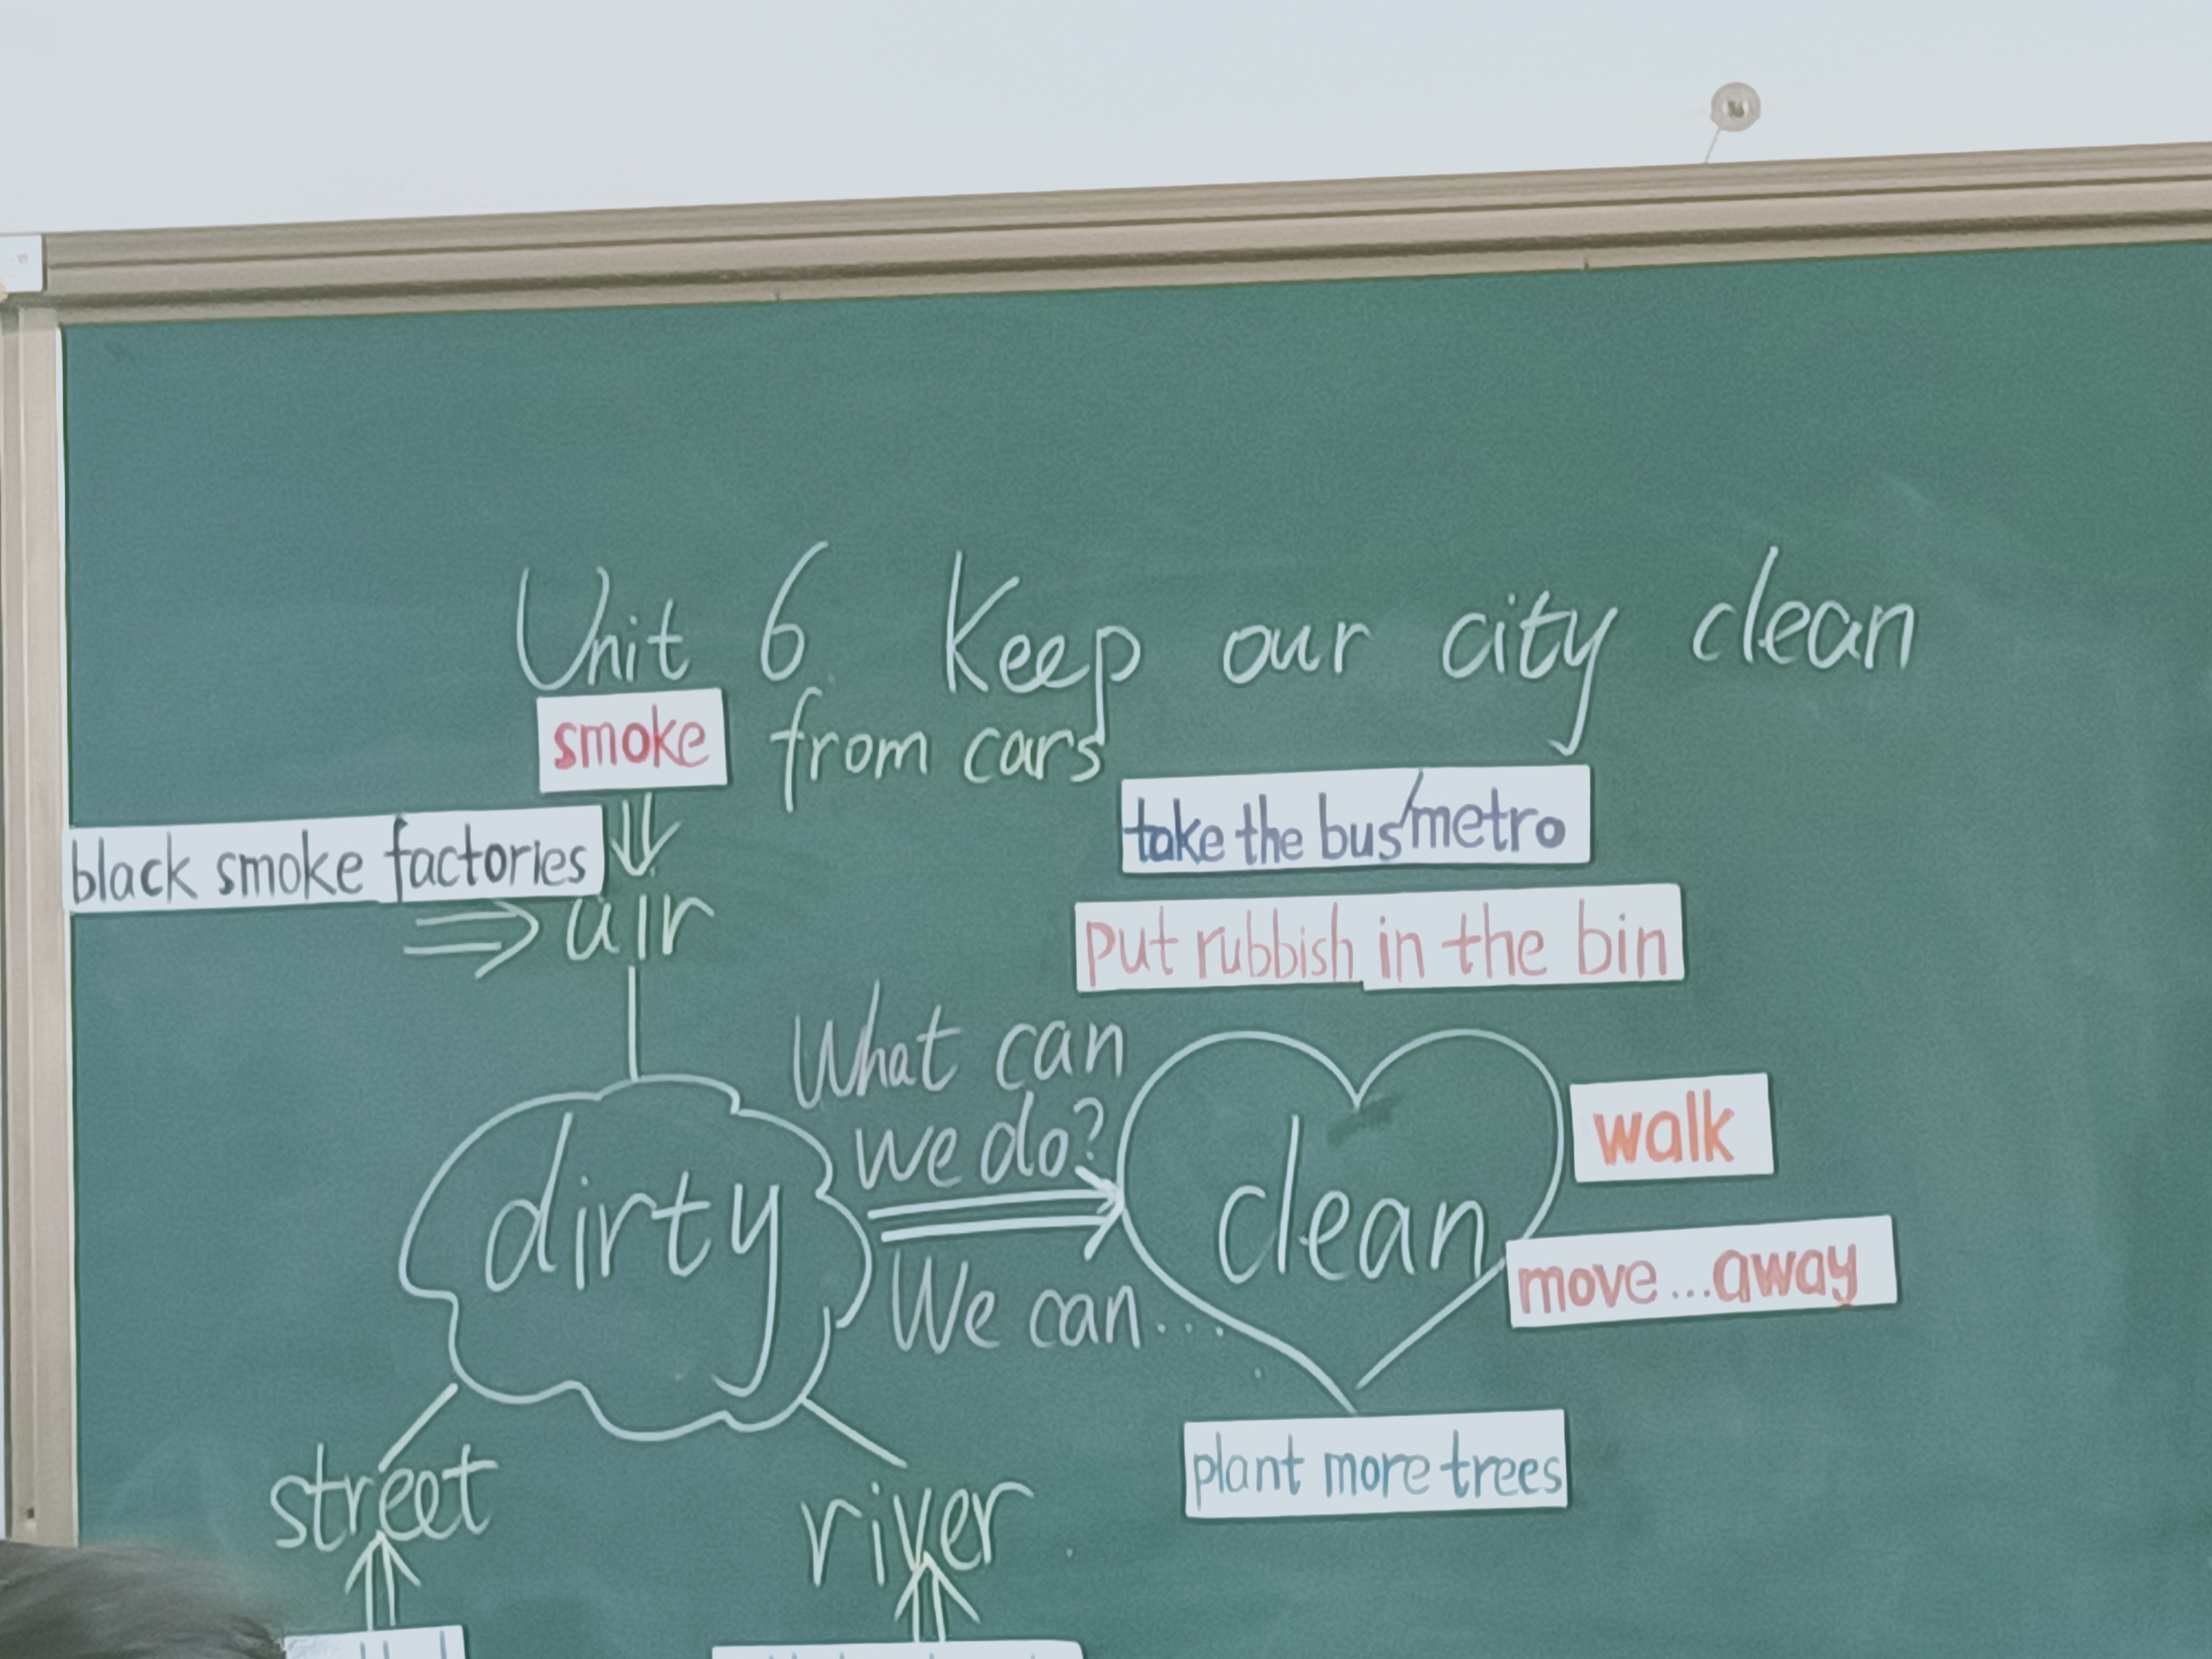 Unit 6 Keep our city clean
smoke from cars
take the bus/metro
black smoke factories
air
put rubbish in the bin
What can
we do?
dirty
clean
walk
We can...
move...away
plant more trees
street
river